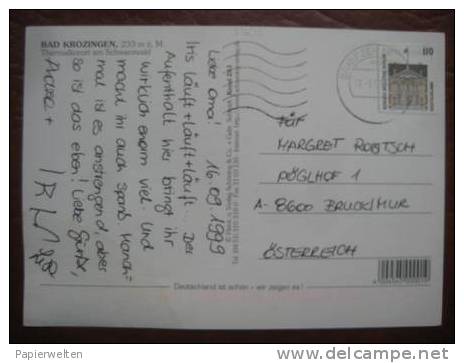 BAD KROZINGEN, 233 m ü. M.
Thermalkurort am Schwarzwald
Liebe Oma! 16.09.1999
Iris läuft+läuft+läuft... Der
Aufenthalt hier bringt ihr
wirklich enorm viel. Und
macht ihr auch Spaß. Manch-
mal ist es anstrengend aber
so ist das eben! Liebe Grüße,
110
MARGRET
PÖGLHOF 1
A-8600 BRUCK/MUR
ÖSTERREICH
Deutschland ist schön - wir zeigen es!
Papierwelten
delcampe.net